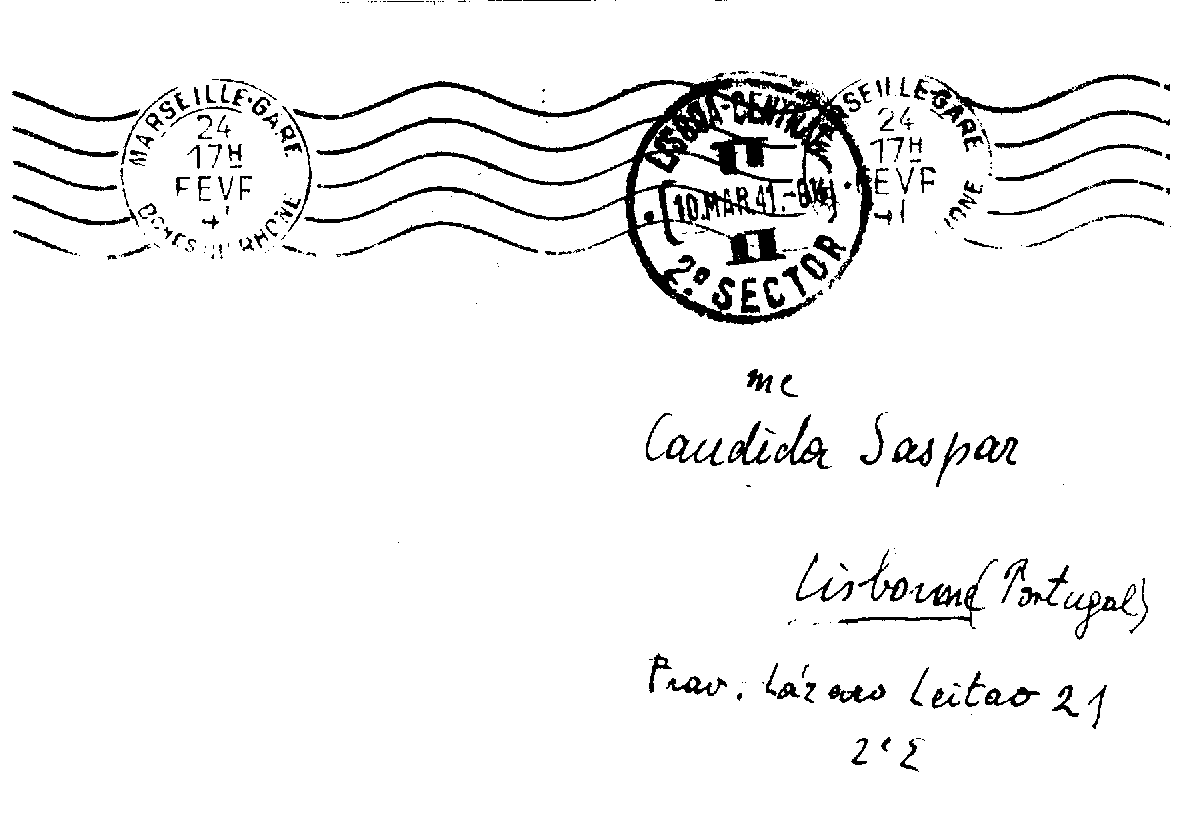 MARSEILLE-GARE
24
17H
FEVR
41
BCHES DU RHONE
LISBOA-CENTRAL
10.MAR.41.
2º SECTOR
MARSEILLE-GARE
24
17H
FEVR
41
RHONE
me
Candida Gaspar
Lisbonne (Portugal)
Trav. Lázaro Leitao 21
2º E